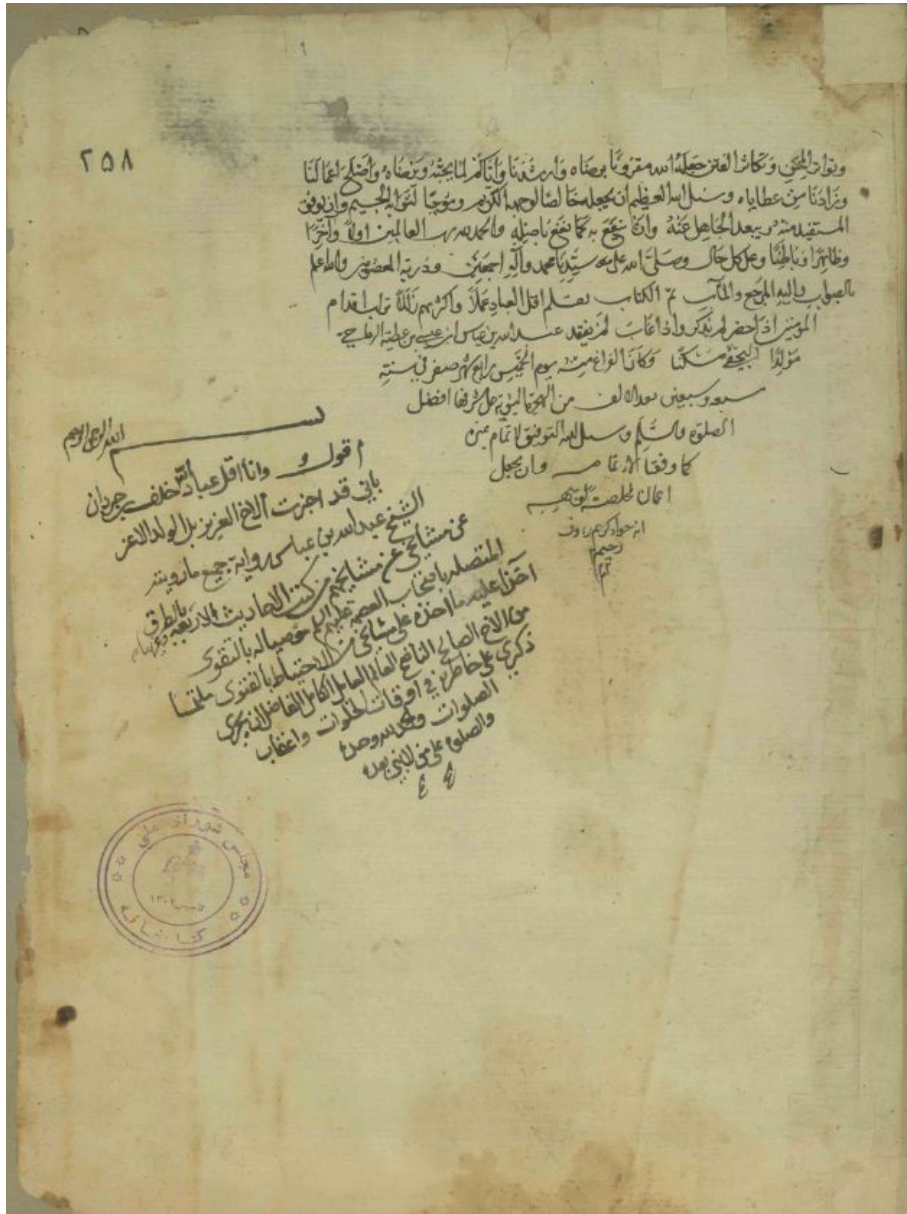 ٢٥٨
وتواتر المحن وتكاثر الفتن جعله الله مقرونا برضاه وارشدنا واياكم لما يحبه ويرضاه واصلح اعمالنا
وزادنا من عطاياه ونسئل الله العظيم ان يجعله خالصا لوجهه الكريم وموجبا لثواب الجسيم وان يوفق
المستفيد منه ويبعد الجاهل عنه وان ينفع به كما نفع باصله والحمد لله رب العالمين اولا وآخرا
وظاهرا وباطنا وعلى كل حال وصلى الله على سيدنا محمد وآله اجمعين وذريته المعصومين والله اعلم
بالصواب واليه المرجع والمآب تم الكتاب بقلم اقل العباد عملا واكثرهم زللا تراب اقدام
المومنين اذا حضر لم يذكر واذا غاب لم يفقد عبد الله بن عباس بن عطيه
مولدا النجفي مسكنا وكان الفراغ منه يوم الخميس رابع شهر صفر في سنة
سبعه وسبعين بعد الالف من الهجرة النبوية على مشرفها افضل
الصلوة والسلم ونسئل الله التوفيق لاتمام غيره
كما وفقنا لاتمامه وان يجعل
اعمالنا خالصة لوجهه
انه جواد كريم رؤف
رحيم
تم
بسم الله الرحمن الرحيم
اقول وانا اقل عباد الله خلف بن حردان
باني قد اجزت الاخ العزيز بل الولد الاعز
الشيخ عبد الله بن عباس رواية جميع ما رويته
عن مشايخي عن مشايخهم من كتب الاحاديث الاربعة وغيرها بالطرق
المتصله باصحاب العصمة عليهم السلم موصيا له بالتقوى
آخذا عليه ما اخذه علي مشايخي من الاحتياط بالفتوى ملتمسا
من الاخ الصالح الناصح العالم العامل الكامل الفاضل ان يجري
ذكري على خاطره في اوقات الخلوات واعقاب
الصلوات والحمد لله وحده
والصلوة على من لا نبي بعده
مجلس شورای ملی
تاسیس ١٣٠٢
کتابخانه